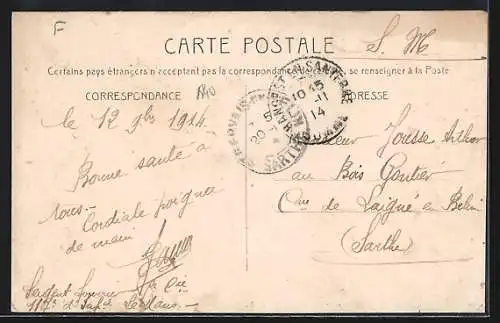 F
CARTE POSTALE
S. M.
Certains pays étrangers n'acceptent pas la correspondance se renseigner à la Poste
CORRESPONDANCE
ADRESSE
le 12 9bre 1914.
Bonne santé à
tous. -
Cordiale poignée
de main
Jousse Arthur
au Bois Gautier
Cne de Laigné en Belin
(Sarthe)
Sergent
117e d'Infie Le Mans
10 45
11
14